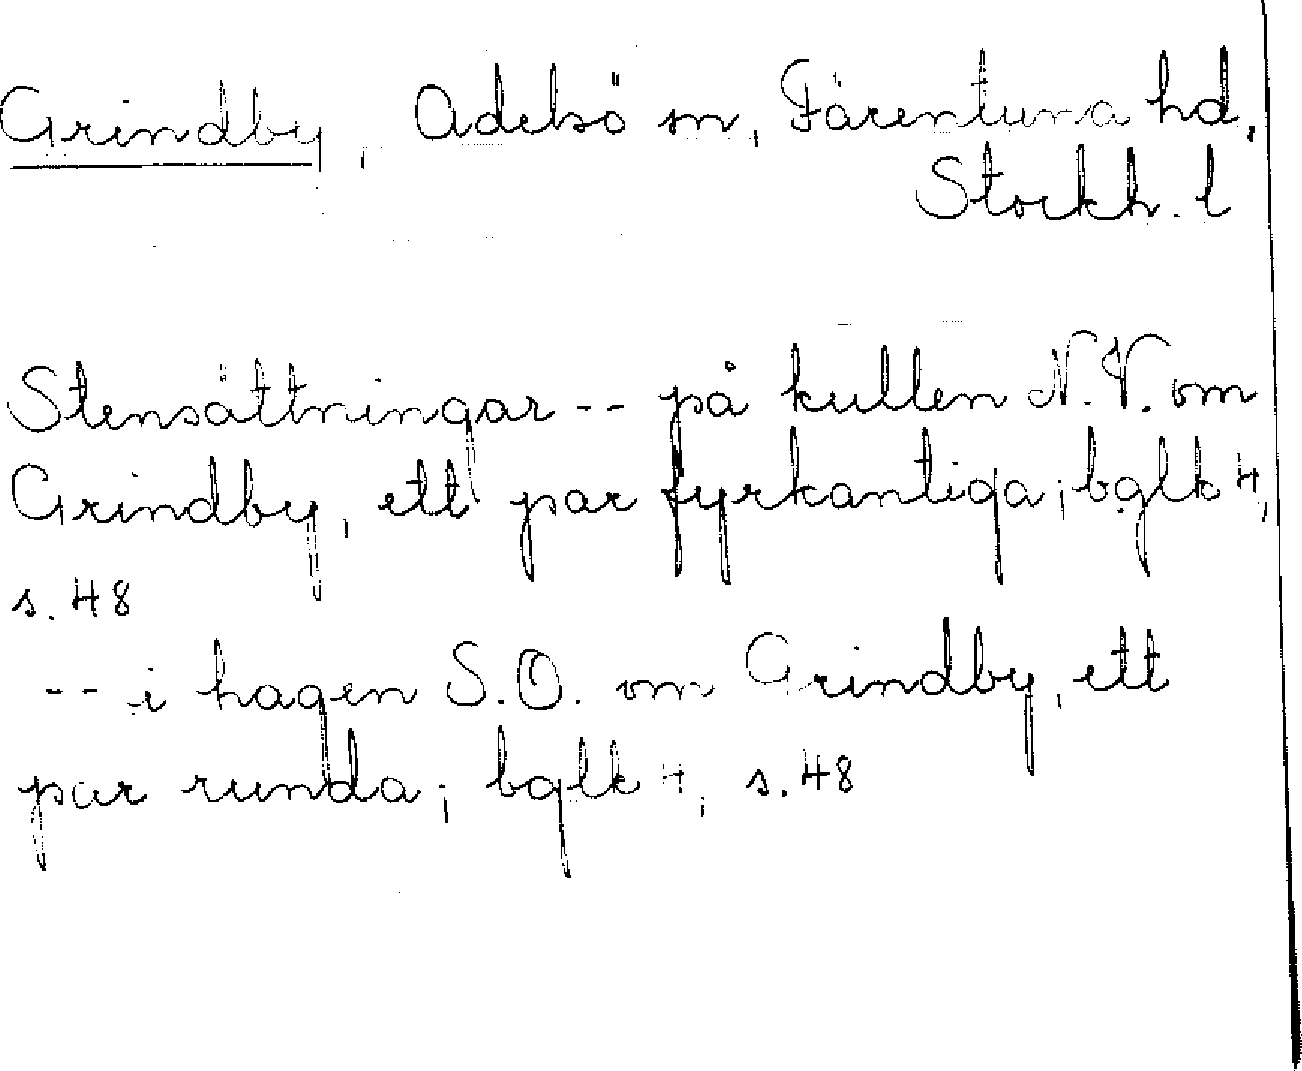 Grindby, Adelsö sn, Färentuna hd,
Stockh. l
Stensättningar -- på kullen N.V. om
Grindby, ett par fyrkantiga; bglk 4,
s. 48
-- i hagen S.O. om Grindby, ett
par runda; bglk 4, s. 48